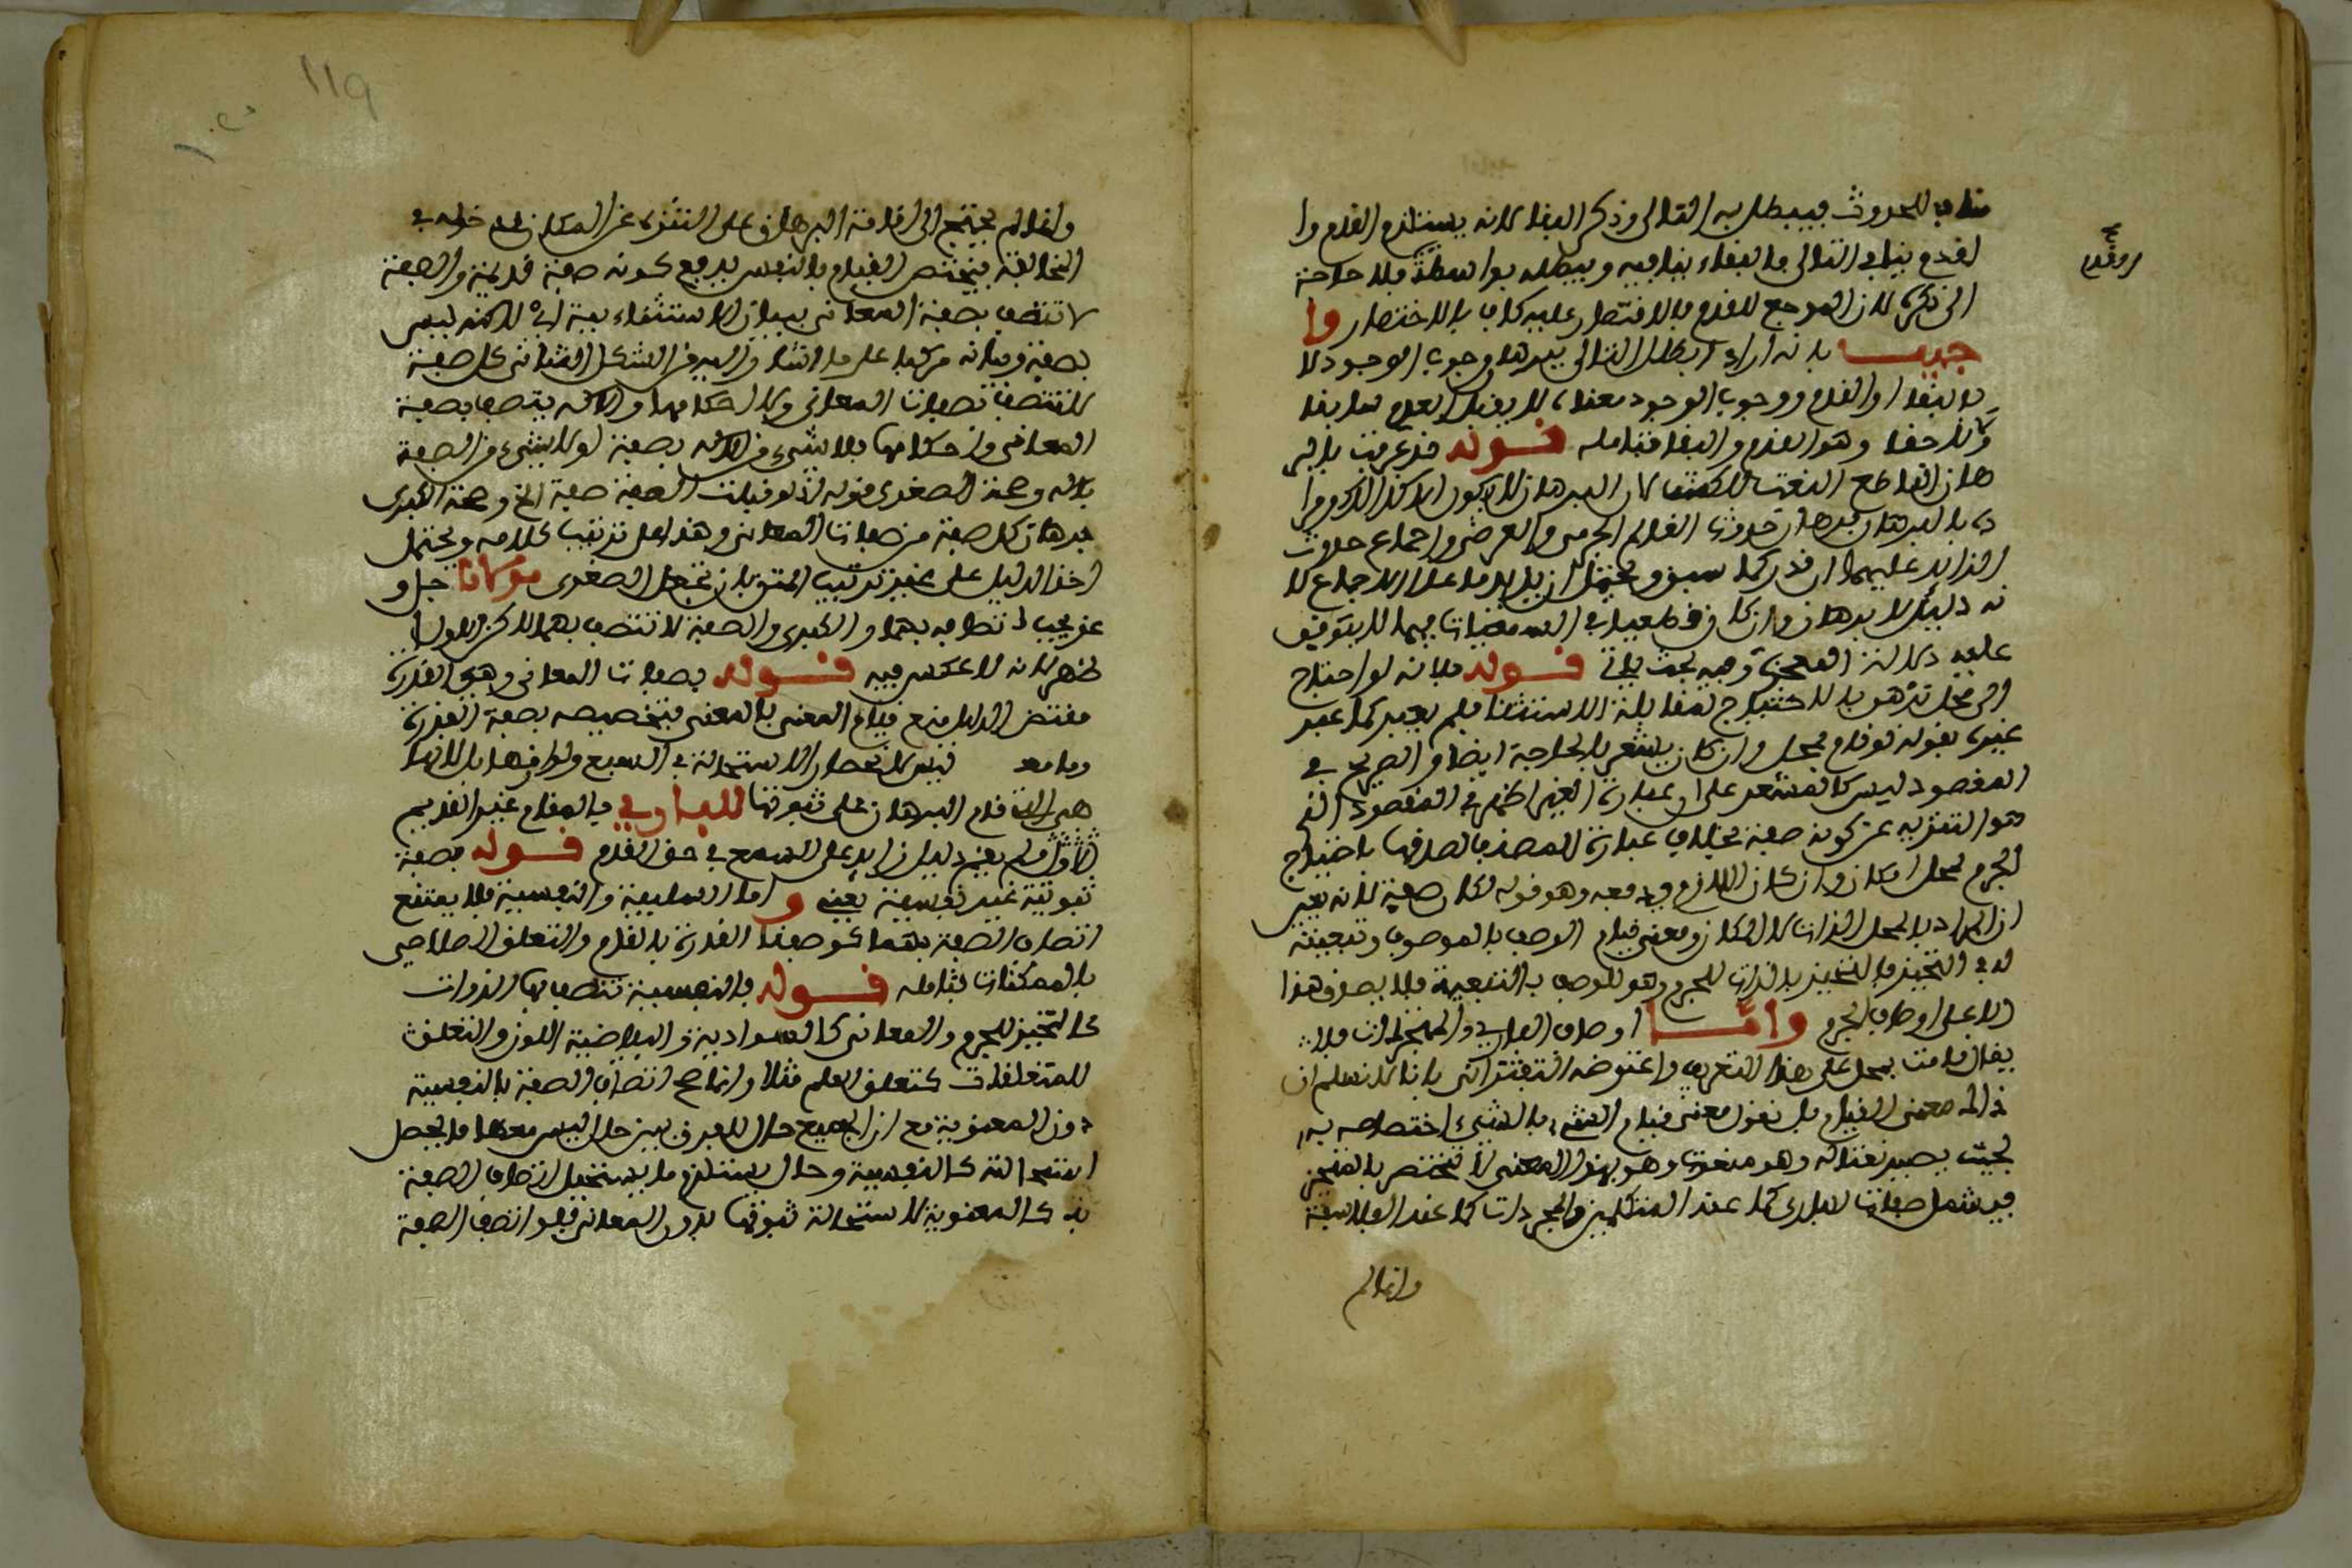 مناف للحدوث فيبطل به التالى وذكر البقا لانه يستلزم القدم وا
لقدم ينافي التالى فالبقاء ينافيه ويبطله بواسطة فلا حاجة
الى ذكره لان المرجع للقدم فالاقتصار عليه كاف بالاختصار وا
جيب بانه اراد ابطال التالى ببرهان وجوب الوجود لا
بالبقا او القدم ووجوب الوجود معناه لا يقبل العدم سابقا
ولا لاحقا وهو القدم والبقا فتامله قوله قد عرفت بالبر
هان القاطع النعت للكشف لان البرهان لا يكون الا كذالك ومرا
ده بالبرهان برهان حدوث العالم الجرمى والعرضى واجماع حدوث
الزايد عليهما ان قدر كما سبق ويحتمل ان يريد ما على الاجماع لا
نه دليل لا برهان وان كان قطعيا في السمعيات فيما لا يتوقف
عليه دلالة المعجزة وفيه بحث ياتى قوله فلانه لو احتاج
الى محل تزهو بالاحتياج لمقابلة الاستثنا فلم يعبر كما عبر
غيره بقوله لو قام بمحل وان كان يشعر بالحاجة ايضا والصريح في
المقصود ليس كالمشعر على ان عبارة الغير اظهر في المقصود الذ
هو التنزيه عن كونه صفة بخلاف عبارة المصنف لصدقها باحتياج
الجرم لمحل امكان وان كان اللازم يدفعه وهو قوله لكان صفة لانه يعين
ان المراد بالمحل الذات لا المكان ومعنى قيام الوصف بالموصوف وتبعيته
له في التحيز فالتحيز بالذات للجرم وهو للوصف بالتبعية فلا يصدق هذا
الا على اوصاف الجرم واما اوصاف البارى والمجردات فلا
يقال قامت بمحل على هذا التعريف واعترضه التفتزانى بانا لا نسلم ان
ذالك معنى القيام بل نقول معنى قيام الشىء بالشىء اختصاصه به
بحيث يصير نعتا له وهو منعوتا وهو بهذا المعنى لا يختص بالمتحيز
فيشمل صفات البارى كما عند المتكلمين والمجردات كما عند الفلاسفة
وانما لم
وانما لم يحتج الى اقامة البرهان على التنزه عن المكان لدخوله في
المخالفة فيختص القيام بالنفس بدفع كونه صفة قديمة والصفة
لا تتصف بصفة المعانى بيان الاستثنائية اى لاكنه ليس
بصفة وبيانه مركبا على ما اشار اليه من الشكل الثانى كل صفة
لا تتصف بصفات المعانى ولا احكامها والاله يتصف بصفة
المعانى واحكامها فلا شىء من الاله بصفة او لا شىء من الصفة
باله وصحة الصغرى قوله اذ لو قبلت الصفة صفة الخ وصحة الكبرى
برهان كل صفة من صفات المعانى وهذا على ترتيب كلامه ويحتمل
اخذ الدليل على غير ترتيب المتن بان تجعل الصغرى مولانا جل و
عز يجب اتصافه بهما والكبرى والصفة لا تتصف بهما لاكن الاول
اظهر لانه لا عكس فيه قوله بصفات المعانى وهى القدرة
مقتضى الدليل منع قيام المعنى بالمعنى فتخصيصه بصفة القدرة
وما معه فيه لانحصار الاستحالة في السبع ولوازمها بل لانها
هى التى قام البرهان على ثبوتها للباري فالمقام غير القديم
الاول فلم يقم دليل زايد على السبع في حق القدم قوله بصفة
ثبوتية غير نفسية يعنى واما السلبية والنفسية فلا يمتنع
اتصاف الصفة بهما كوصفنا القدرة بالقدم والتعلق الصلاحى
بالممكنات فتامله قوله فالنفسية تتصف بها الذوات
كالتحيز للجرم والمعانى كالسوادية والبياضية اللون والتعلق
للمتعلقات كتعلق العلم مثلا وانما صح اتصاف الصفة بالنفسية
دون المعنوية مع ان الجميع حال للفرق بين حال ليس معها ما يحصل
استحالته كالنفسية وحال يستلزم ما يستحيل اتصاف الصفة
به كالمعنوية لاستحالة ثبوتها بدون المعانى فلو اتصف الصفة
119